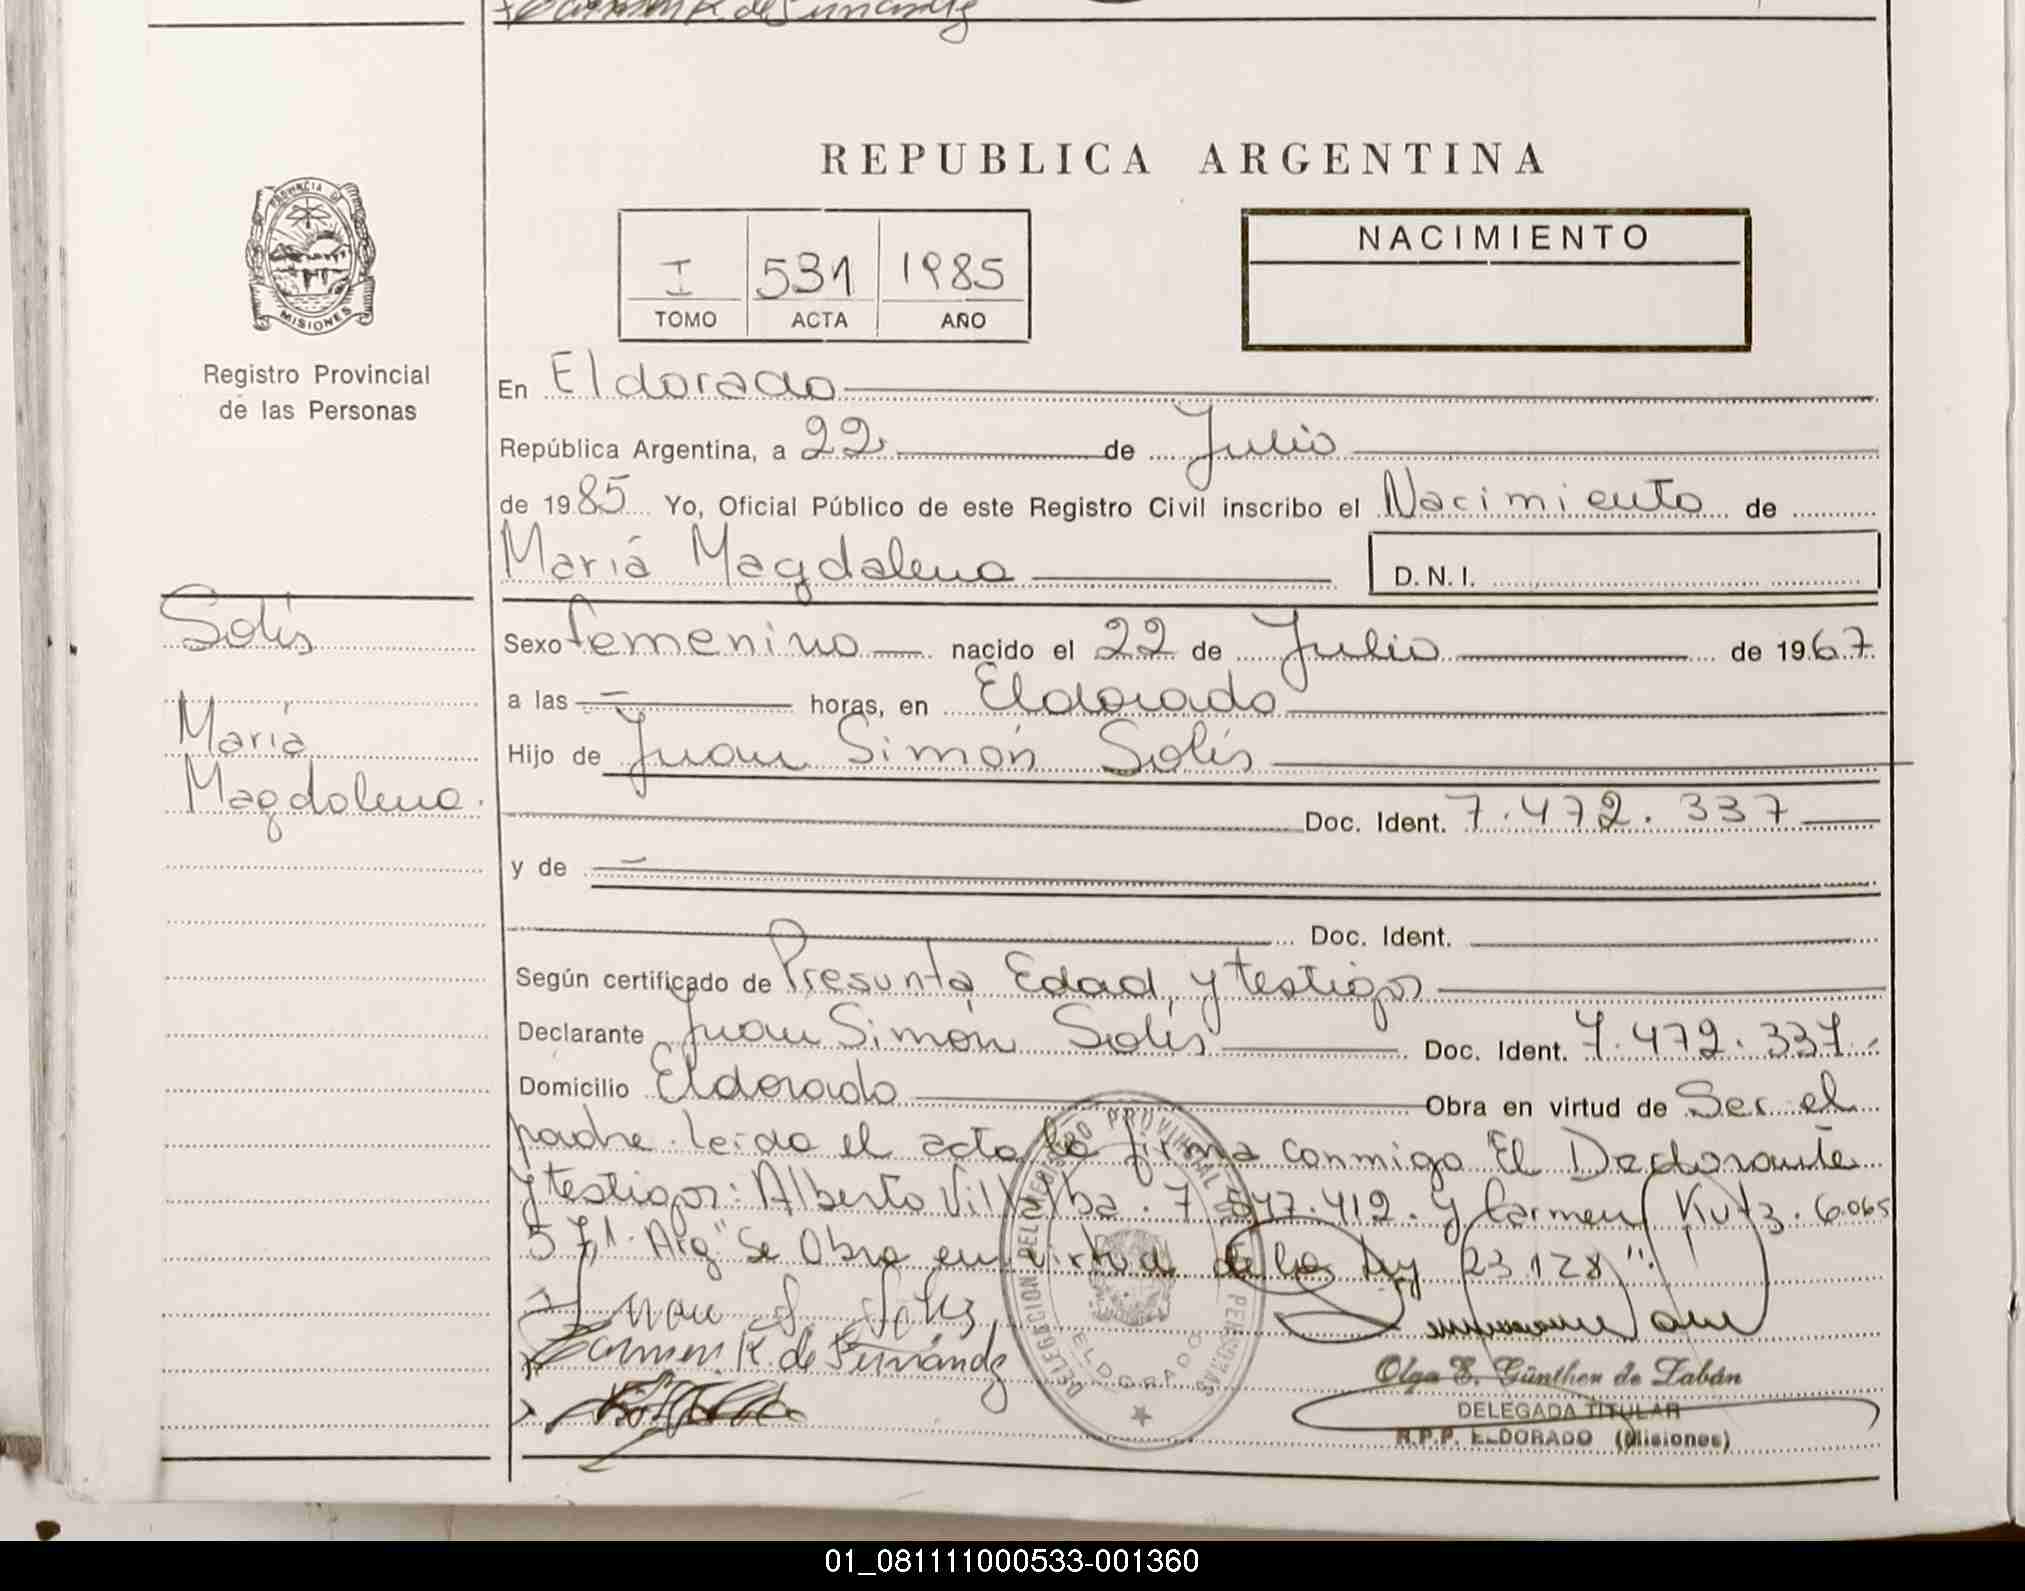 Carmen K de Fernández
REPUBLICA ARGENTINA
PROVINCIA DE
MISIONES
Registro Provincial
de las Personas
I 531 1985
TOMO ACTA AÑO
NACIMIENTO
En Eldorado
República Argentina, a 22 de Julio
de 1985 Yo, Oficial Público de este Registro Civil inscribo el Nacimiento de
Mariá Magdalena D.N.I.
Solís
Mariá
Magdalena.
Sexo femenino nacido el 22 de Julio de 1967.
a las — horas, en Eldorado
Hijo de Juan Simón Solís
Doc. Ident. 7.472.337
y de —
Doc. Ident.
Según certificado de Presunta Edad y testigos
Declarante Juan Simón Solís Doc. Ident. 7.472.337.
Domicilio Eldorado Obra en virtud de Ser el
padre. Leída el acta la firma conmigo El Declarante
y testigos: Alberto Villalba. 7.547.412. y Carmen Kutz. 6.065
571. Arg "Se Obra en virtud de la Ley 23128".
Juan S. Solis
Carmen K. de Fernández
DELEGACION DEL REGISTRO PROVINCIAL DE LAS PERSONAS
ELDORADO
Olga E. Günther de Zabán
DELEGADA TITULAR
R.P.P. ELDORADO (Misiones)
01_081111000533-001360